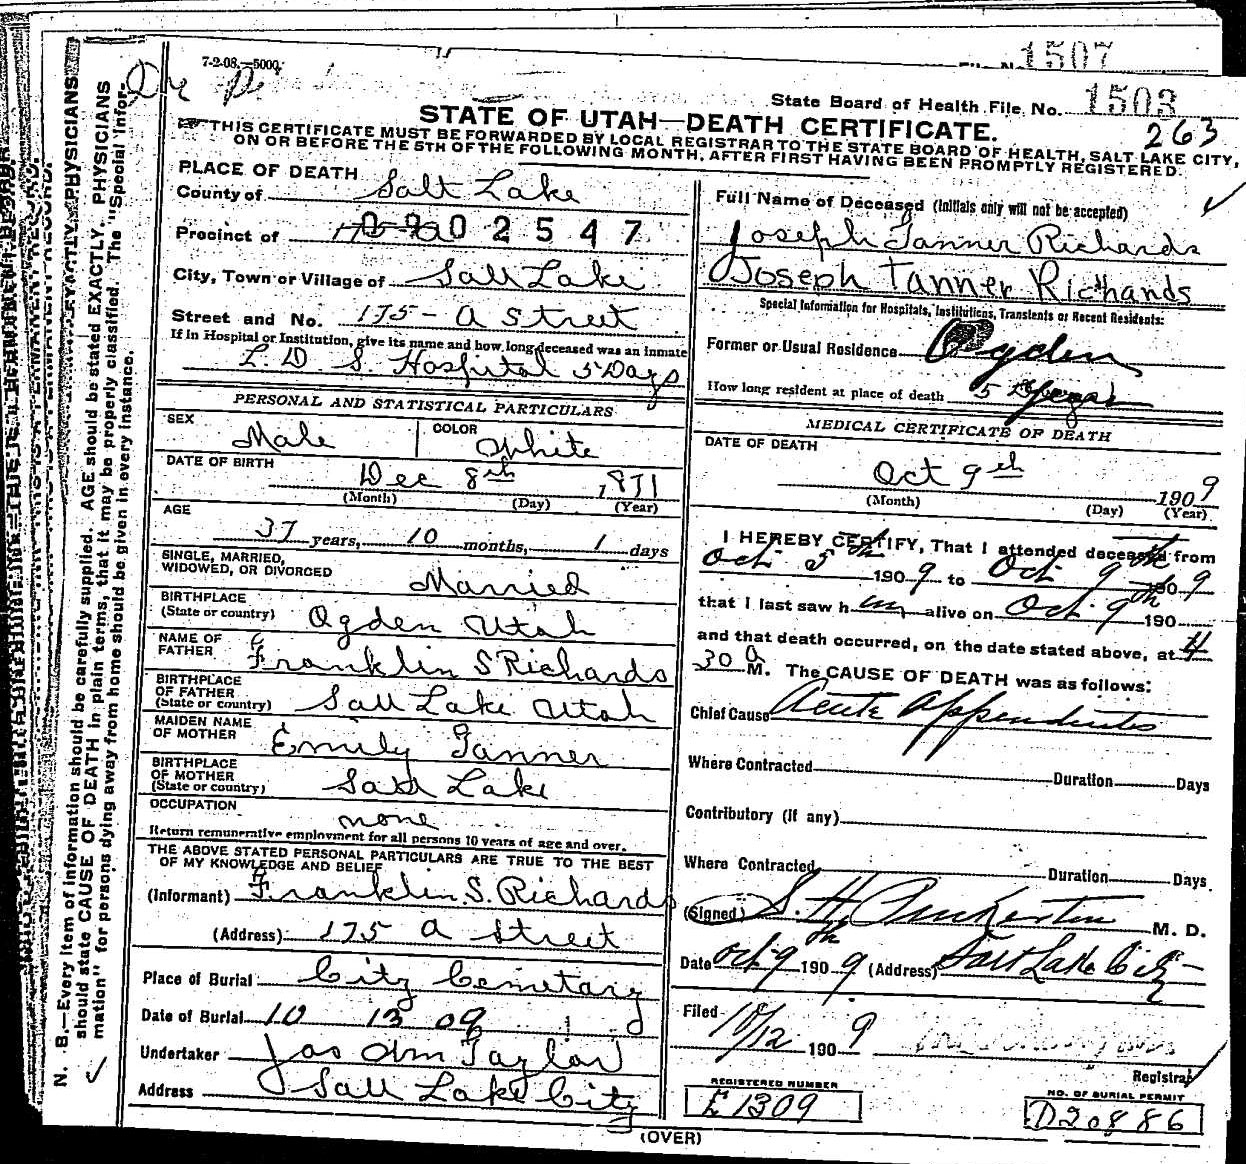 7-2-08.—5000.
1507
State Board of Health File No. 1503
263
STATE OF UTAH—DEATH CERTIFICATE.
THIS CERTIFICATE MUST BE FORWARDED BY LOCAL REGISTRAR TO THE STATE BOARD OF HEALTH, SALT LAKE CITY,
ON OR BEFORE THE 5TH OF THE FOLLOWING MONTH, AFTER FIRST HAVING BEEN PROMPTLY REGISTERED.
PLACE OF DEATH
County of Salt Lake
Precinct of 02547
City, Town or Village of Salt Lake
Street and No. 175 - A Street
If in Hospital or Institution, give its name and how long deceased was an inmate
L. D. S. Hospital 5 Days
PERSONAL AND STATISTICAL PARTICULARS
SEX Male
COLOR White
DATE OF BIRTH Dec 8th 1871
(Month) (Day) (Year)
AGE
37 years, 10 months, 1 days
SINGLE, MARRIED,
WIDOWED, OR DIVORCED Married
BIRTHPLACE
(State or country) Ogden Utah
NAME OF
FATHER Franklin S Richards
BIRTHPLACE
OF FATHER
(State or country) Salt Lake Utah
MAIDEN NAME
OF MOTHER Emily Tanner
BIRTHPLACE
OF MOTHER
(State or country) Salt Lake
OCCUPATION
none
Return remunerative employment for all persons 10 years of age and over.
THE ABOVE STATED PERSONAL PARTICULARS ARE TRUE TO THE BEST
OF MY KNOWLEDGE AND BELIEF
(Informant) Franklin S. Richards
(Address) 175 A Street
Place of Burial City Cemetary
Date of Burial 10 13 09
Undertaker Jos Wm Taylor
Address Salt Lake City
Full Name of Deceased (Initials only will not be accepted)
Joseph Tanner Richards
Joseph Tanner Richards
Special Information for Hospitals, Institutions, Transients or Recent Residents:
Former or Usual Residence Ogden
How long resident at place of death 5
MEDICAL CERTIFICATE OF DEATH
DATE OF DEATH
Oct 9th 1909
(Month) (Day) (Year)
I HEREBY CERTIFY, That I attended deceased from
Oct 5th 1909 to Oct 9th 1909
that I last saw him alive on Oct. 9th 190
and that death occurred, on the date stated above, at 4
30 a M. The CAUSE OF DEATH was as follows:
Chief Cause Acute Appendicitis
Where Contracted Duration Days
Contributory (if any)
Where Contracted Duration Days
(Signed) S. H. Pinkerton M. D.
Date Oct 9th 1909 (Address) Salt Lake City
Filed 10/12 1909
Registrar
REGISTERED NUMBER
E1309
NO. OF BURIAL PERMIT
D20886
(OVER)
N. B.—Every item of information should be carefully supplied. AGE should be stated EXACTLY. PHYSICIANS
should state CAUSE OF DEATH in plain terms, that it may be properly classified. The "Special Infor-
mation" for persons dying away from home should be given in every instance.